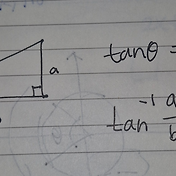 a
tanθ =
tan⁻¹ a/b